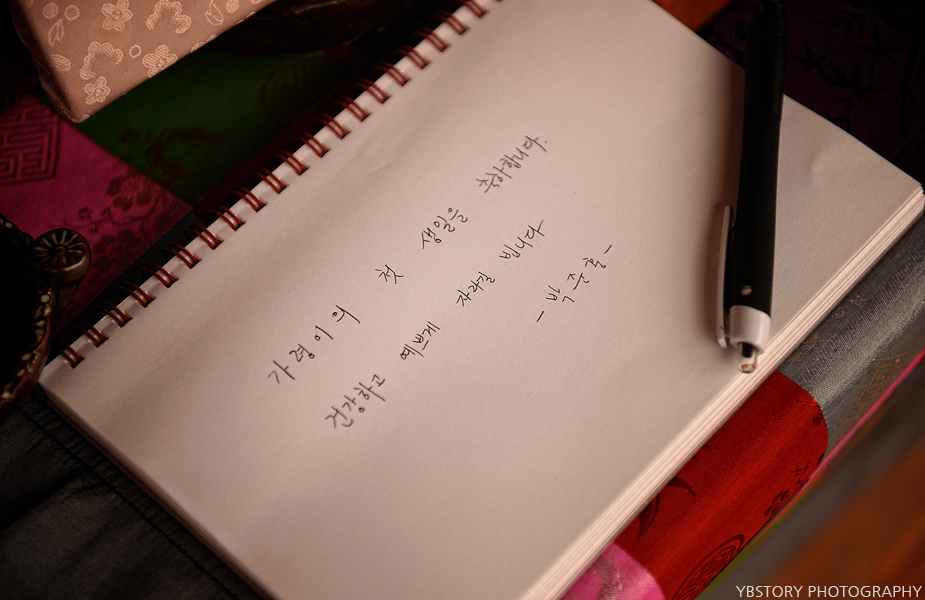 가령이의 첫 생일을 축하합니다.
건강하고 예쁘게 자라길 빕니다
YBSTORY PHOTOGRAPHY